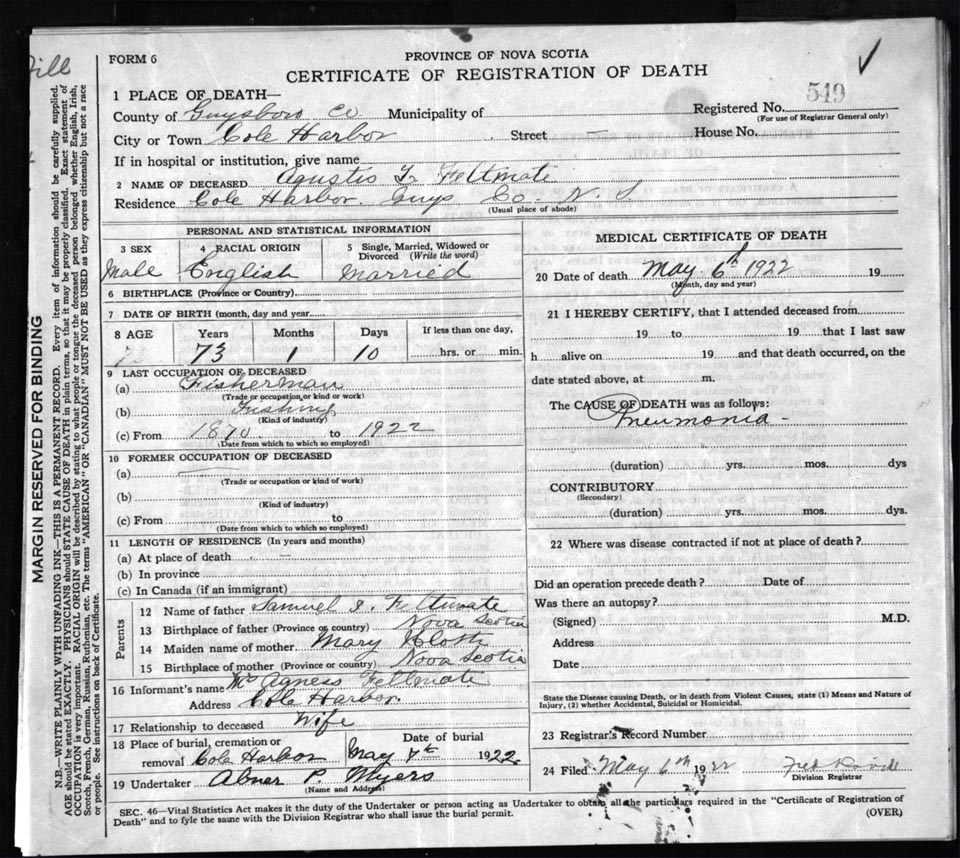 FORM 6
PROVINCE OF NOVA SCOTIA
CERTIFICATE OF REGISTRATION OF DEATH
549
1 PLACE OF DEATH—
County of Guysboro Co Municipality of
Registered No.
(For use of Registrar General only)
City or Town Cole Harbor Street —
House No.
If in hospital or institution, give name
2 NAME OF DECEASED Agustis Feltmate
Residence Cole Harbor Guys Co. N. S.
(Usual place of abode)
PERSONAL AND STATISTICAL INFORMATION
3 SEX
Male
4 RACIAL ORIGIN
English
5 Single, Married, Widowed or
Divorced (Write the word)
Married
6 BIRTHPLACE (Province or Country)
7 DATE OF BIRTH (month, day and year)
8 AGE Years Months Days If less than one day,
73 1 10 hrs. or min.
9 LAST OCCUPATION OF DECEASED
(a) Fisherman
(Trade or occupation or kind or work)
(b)
(Kind of industry)
(c) From 1870 to 1922
(Date from which to which so employed)
10 FORMER OCCUPATION OF DECEASED
(a)
(Trade or occupation or kind of work)
(b)
(Kind of industry)
(c) From to
(Date from which to which so employed)
11 LENGTH OF RESIDENCE (In years and months)
(a) At place of death
(b) In province
(c) In Canada (if an immigrant)
Parents
12 Name of father Samuel Feltmate
13 Birthplace of father (Province or country) Nova Scotia
14 Maiden name of mother Mary
15 Birthplace of mother (Province or country) Nova Scotia
16 Informant's name Mrs Agness Feltmate
Address Cole Harbor
17 Relationship to deceased Wife
18 Place of burial, cremation or Date of burial
removal Cole Harbor May 1922
19 Undertaker Abner P. Myers
(Name and Address)
MEDICAL CERTIFICATE OF DEATH
20 Date of death May 6th 1922 19
(Month, day and year)
21 I HEREBY CERTIFY, that I attended deceased from
19 to 19 that I last saw
h alive on 19 and that death occurred, on the
date stated above, at m.
The CAUSE OF DEATH was as follows:
Pneumonia -
(duration) yrs. mos. dys
CONTRIBUTORY
(Secondary)
(duration) yrs. mos. dys.
22 Where was disease contracted if not at place of death?
Did an operation precede death? Date of
Was there an autopsy?
(Signed) M.D.
Address
Date
State the Disease causing Death, or in death from Violent Causes, state (1) Means and Nature of
Injury, (2) whether Accidental, Suicidal or Homicidal.
23 Registrar's Record Number
24 Filed May 6th 1922 Fred
Division Registrar
SEC. 46—Vital Statistics Act makes it the duty of the Undertaker or person acting as Undertaker to obtain all the particulars required in the "Certificate of Registration of
Death" and to fyle the same with the Division Registrar who shall issue the burial permit.
(OVER)
MARGIN RESERVED FOR BINDING
N.B.—WRITE PLAINLY WITH UNFADING INK—THIS IS A PERMANENT RECORD. Every item of information should be carefully supplied.
AGE should be stated EXACTLY. PHYSICIANS should STATE CAUSE OF DEATH in plain terms, so that it may be properly classified. Exact statement of
OCCUPATION is very important. RACIAL ORIGIN will be described by stating to what people or tongue the deceased person belonged whether English, Irish,
Scotch, French, German, Russian, Ruthenian, etc. The terms "AMERICAN" OR "CANADIAN" MUST NOT BE USED as they express citizenship but not a race
or people. See instructions on back of Certificate.